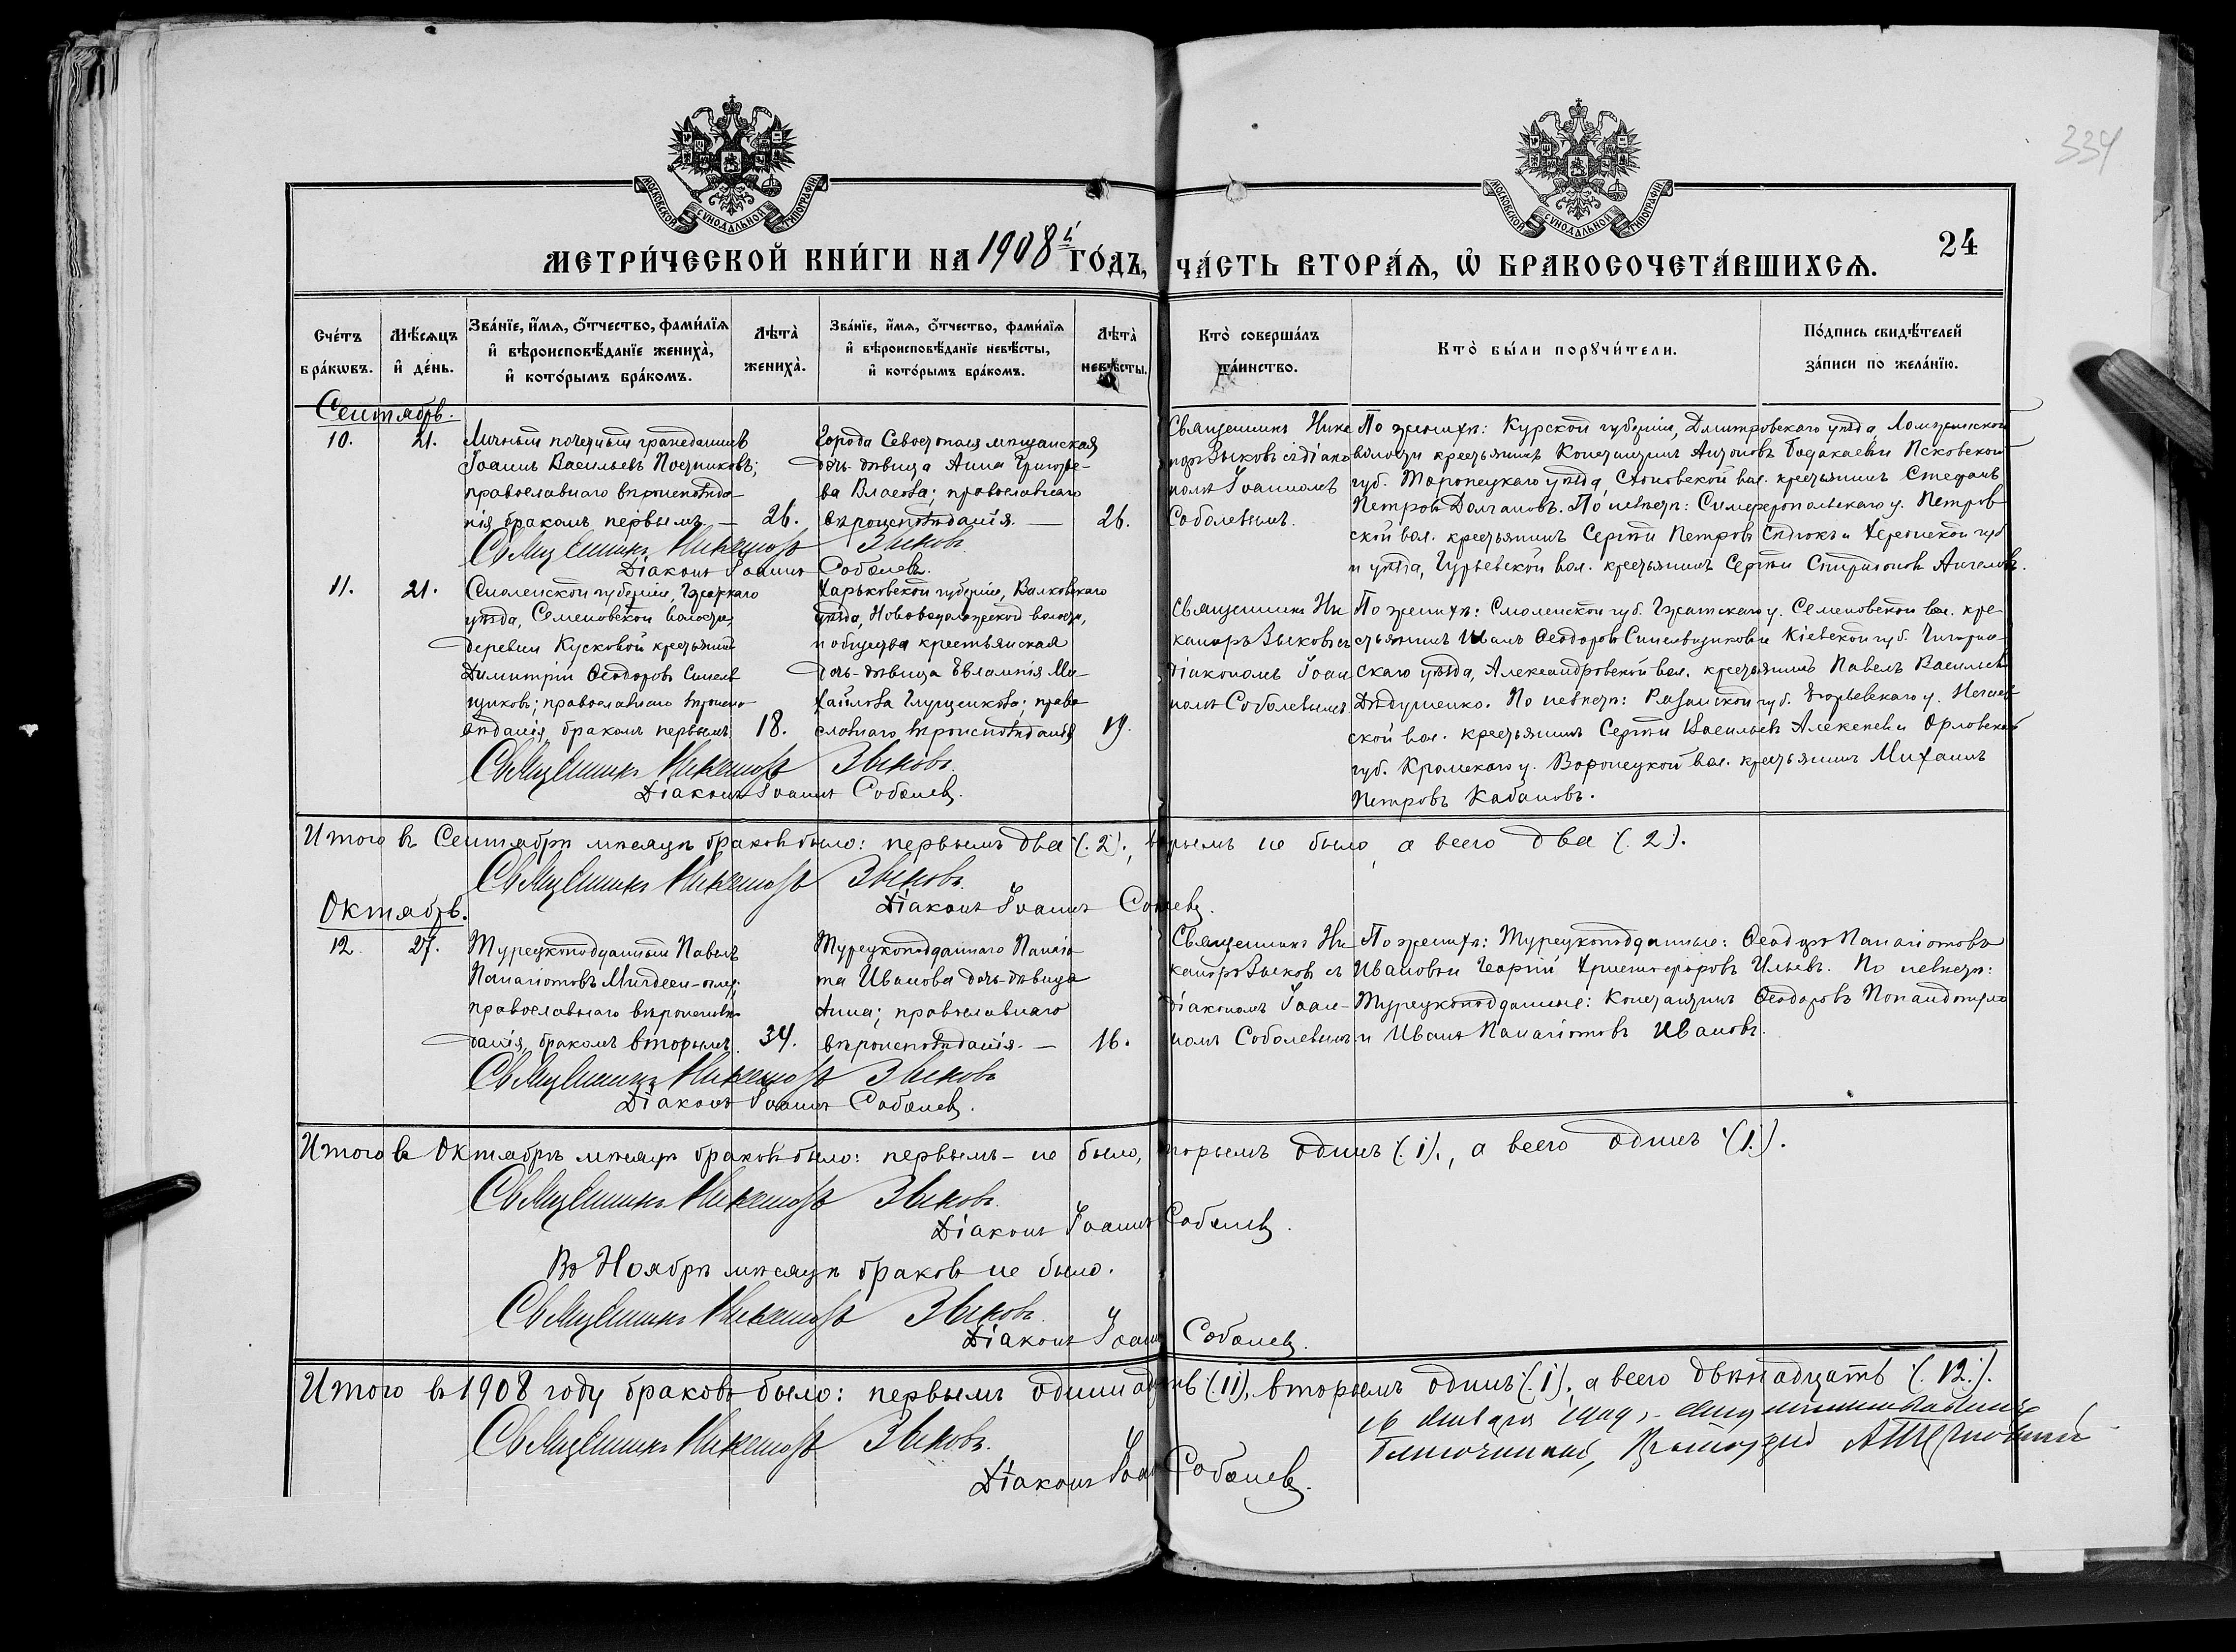 МОСКОВСКОЙ СѴНОДАЛЬНОЙ ТИПОГРАФІИ
МОСКОВСКОЙ СѴНОДАЛЬНОЙ ТИПОГРАФІИ
334
МЕТРИ́ЧЕСКОЙ КНИ́ГИ НА 1908й ГО́ДЪ, ЧА́СТЬ ВТОРА́Ѧ, Ѽ БРАКОСОЧЕТА́ВШИХСѦ.
24
Сче́тъ бра́кѡвъ.
Мѣ́сѧцъ и҆ де́нь.
Зва́нїе, и҆́мѧ, ѻ҆́тчество, фами́лїѧ и҆ вѣроисповѣ́данїе жениха̀, и҆ кото́рымъ бра́комъ.
Лѣта̀ жениха̀.
Зва́нїе, и҆́мѧ, ѻ҆́тчество, фами́лїѧ и҆ вѣроисповѣ́данїе невѣ́сты, и҆ кото́рымъ бра́комъ.
Лѣта̀ невѣ́сты.
Кто̀ соверша́лъ та́инство.
Кто̀ бы́ли порꙋчи́тели.
По́дпись свидѣ́телей за́писи по жела́нїю.
Сентябрь.
10. 21.
Личный почетный гражданинъ
Іоаннъ Васильевъ Постниковъ;
православнаго вѣроисповѣда-
нія, бракомъ первымъ. — 26.
Города Севастополя мѣщанская
дочь-дѣвица Анна Григорье-
ва Власова; православнаго
вѣроисповѣданія. — 26.
Священникъ Ника
норъ Зыковъ съ діако
номъ Іоанномъ
Соболевымъ.
По женихѣ: Курской губерніи, Дмитровскаго уѣзда
волости крестьянинъ Константинъ Антоновъ Псковской
губ. Торопецкаго уѣзда, вол. крестьянинъ Стефанъ
Петровъ Долгановъ. По невѣстѣ: Симферопольскаго у. Петров
ской вол. крестьянинъ Сергѣй Петровъ и Херсонской губ
и уѣзда, Гурьевской вол. крестьянинъ Сергѣй Спиридоновъ
Священникъ Никаноръ Зыковъ.
Діаконъ Іоаннъ Соболевъ.
11. 21.
Смоленской губерніи, Гжатскаго
уѣзда, Семеновской волости,
деревни Кусковой крестьянинъ
Димитрій Ѳеодоровъ Синель
щиковъ; православнаго вѣроиспо-
вѣданія, бракомъ первымъ. 18.
Харьковской губерніи, Валковскаго
уѣзда, Нововодолажской волости,
и общества крестьянская
дочь-дѣвица Евлампія Ми-
хайлова Глущенкова; право
славнаго вѣроисповѣданія 19.
Священникъ Ни
каноръ Зыковъ съ
діакономъ Іоан
номъ Соболевымъ
По женихѣ: Смоленской губ. Гжатскаго у. Семеновской вол. кре-
стьянинъ Иванъ Ѳеодоровъ Синельщиковъ и Кіевской губ. Чигирин-
скаго уѣзда, Александровской вол. крестьянинъ Павелъ Васильевъ
Дѣдушенко. По невѣстѣ: Рязанской губ. Егорьевскаго у.
ской вол. крестьянинъ Сергѣй Васильевъ и Орловской
губ. Кромскаго у. Воронецкой вол. крестьянинъ Михаилъ
Петровъ Кабановъ.
Священникъ Никаноръ Зыковъ.
Діаконъ Іоаннъ Соболевъ.
Итого въ Сентябрѣ мѣсяцѣ браковъ было: первымъ два (.2)., вторымъ не было, а всего два (.2).
Священникъ Никаноръ Зыковъ.
Діаконъ Іоаннъ Соболевъ.
Октябрь.
12. 27.
Турецкоподданный Павелъ
Панагіотовъ
православнаго вѣроисповѣ-
данія, бракомъ вторымъ. 34.
Турецкоподданнаго Панагіо
та Иванова дочь-дѣвица
Анна; православнаго
вѣроисповѣданія. — 16.
Священникъ Ни
каноръ Зыковъ съ
діакономъ Іоан-
номъ Соболевымъ
По женихѣ: Турецкоподданные: Ѳеодоръ Панагіотовъ
Ивановъ и Георгій Христофоровъ Ильевъ. По невѣстѣ:
Турецкоподданные: Константинъ Ѳеодоровъ
и Иванъ Панагіотовъ Ивановъ.
Священникъ Никаноръ Зыковъ
Діаконъ Іоаннъ Соболевъ.
Итого въ Октябрѣ мѣсяцѣ браковъ было: первымъ - не было, вторымъ одинъ (.1)., а всего одинъ (1.).
Священникъ Никаноръ Зыковъ.
Діаконъ Іоаннъ Соболевъ.
Въ Ноябрѣ мѣсяцѣ браковъ не было.
Священникъ Никаноръ Зыковъ.
Діаконъ Іоаннъ Соболевъ.
Итого въ 1908 году браковъ было: первымъ одиннадцать (.11)., вторымъ одинъ (.1)., а всего двѣнадцать (.12.).
Священникъ Никаноръ Зыковъ.
Діаконъ Іоаннъ Соболевъ.
16 Января 1909,
Благочинный, Протоіерей